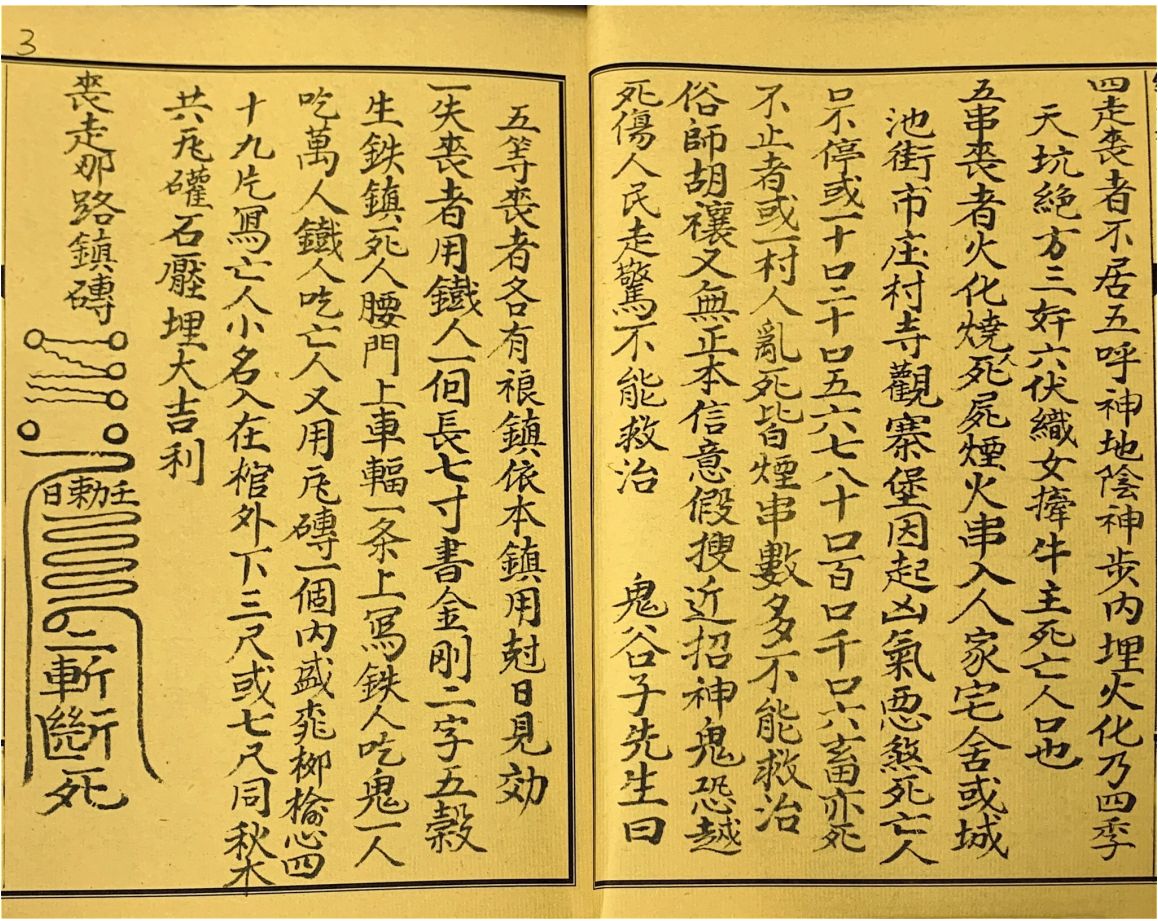 四走丧者不居五呼神地陰神步内埋火化乃四季
天坑絶方三奸六伏織女牽牛主死亡人口也
五串丧者火化燒死人屍煙火串入人家宅舍或城
池街市庄村寺觀寨堡因起凶氣恶煞死亡人
口不停或一十口二十口五六七八十口百口千口六畜亦死
不止者或一村人亂死皆白煙串數多不能救治
俗師胡禳又無正本信意假搜近招神鬼恐越
死傷人民走驚不能救治 鬼谷子先生曰
五等丧者各有禳鎮依本鎮用尅日見効
一失丧者用鐵人一個長七寸書金刚二字五穀
生鉄鎮死人腰門上車輻一条上寫鉄人吃鬼一人
吃萬人鐵人吃亡人又用瓦磚一個内盛桃柳榆心四
十九片寫亡人小名入在棺外下三尺或七尺同秋木
共瓦礶石壓埋大吉利
丧走那路鎮磚
日敕
二斬
死
3